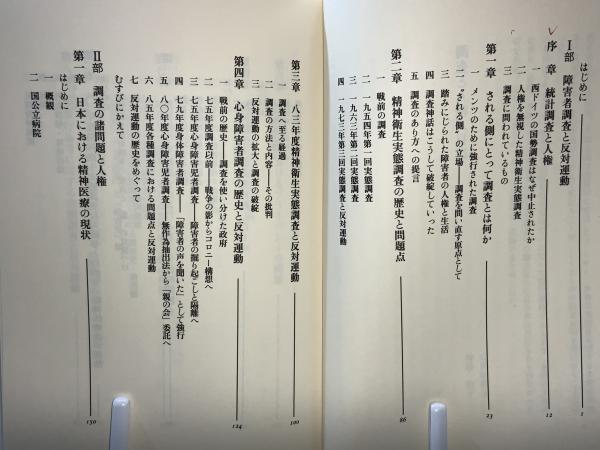 はじめに 1
Ⅰ部 障害者調査と反対運動
序章 統計調査と人権 12
一 西ドイツの国勢調査はなぜ中止されたか
二 人権を無視した精神衛生実態調査
三 調査に問われているもの
第一章 される側にとって調査とは何か 23
一 メンツのために強行された調査
二 “される側”の立場――調査を問い直す原点として
三 踏みにじられた障害者の人権と生活
四 調査神話はこうして破綻していった
五 調査のあり方への提言
第二章 精神衛生実態調査の歴史と問題点 86
一 戦前の調査
二 一九五四年第一回実態調査
三 一九六三年第二回実態調査
四 一九七三年第三回実態調査と反対運動
第三章 八三年度精神衛生実態調査と反対運動 100
一 調査へ至る経過
二 調査の方法と内容――その批判
三 反対運動の拡大と調査の破綻
第四章 心身障害者調査の歴史と反対運動 124
一 戦前の歴史――調査を使い分けた政府
二 七五年度調査以前――戦争の影からコロニー構想へ
三 七五年度心身障害者調査――障害者の掘り起こしと隔離へ
四 七九年度身体障害者調査――「障害者の声を聞いた」として強行
五 八〇年度心身障害児者調査――無作為抽出法から「親の会」委託へ
六 八五年度各種調査における問題点と反対運動
七 反対運動の歴史をめぐって
むすびにかえて
Ⅱ部 調査の諸問題と人権
第一章 日本における精神医療の現状 150
はじめに
一 概観
二 国公立病院